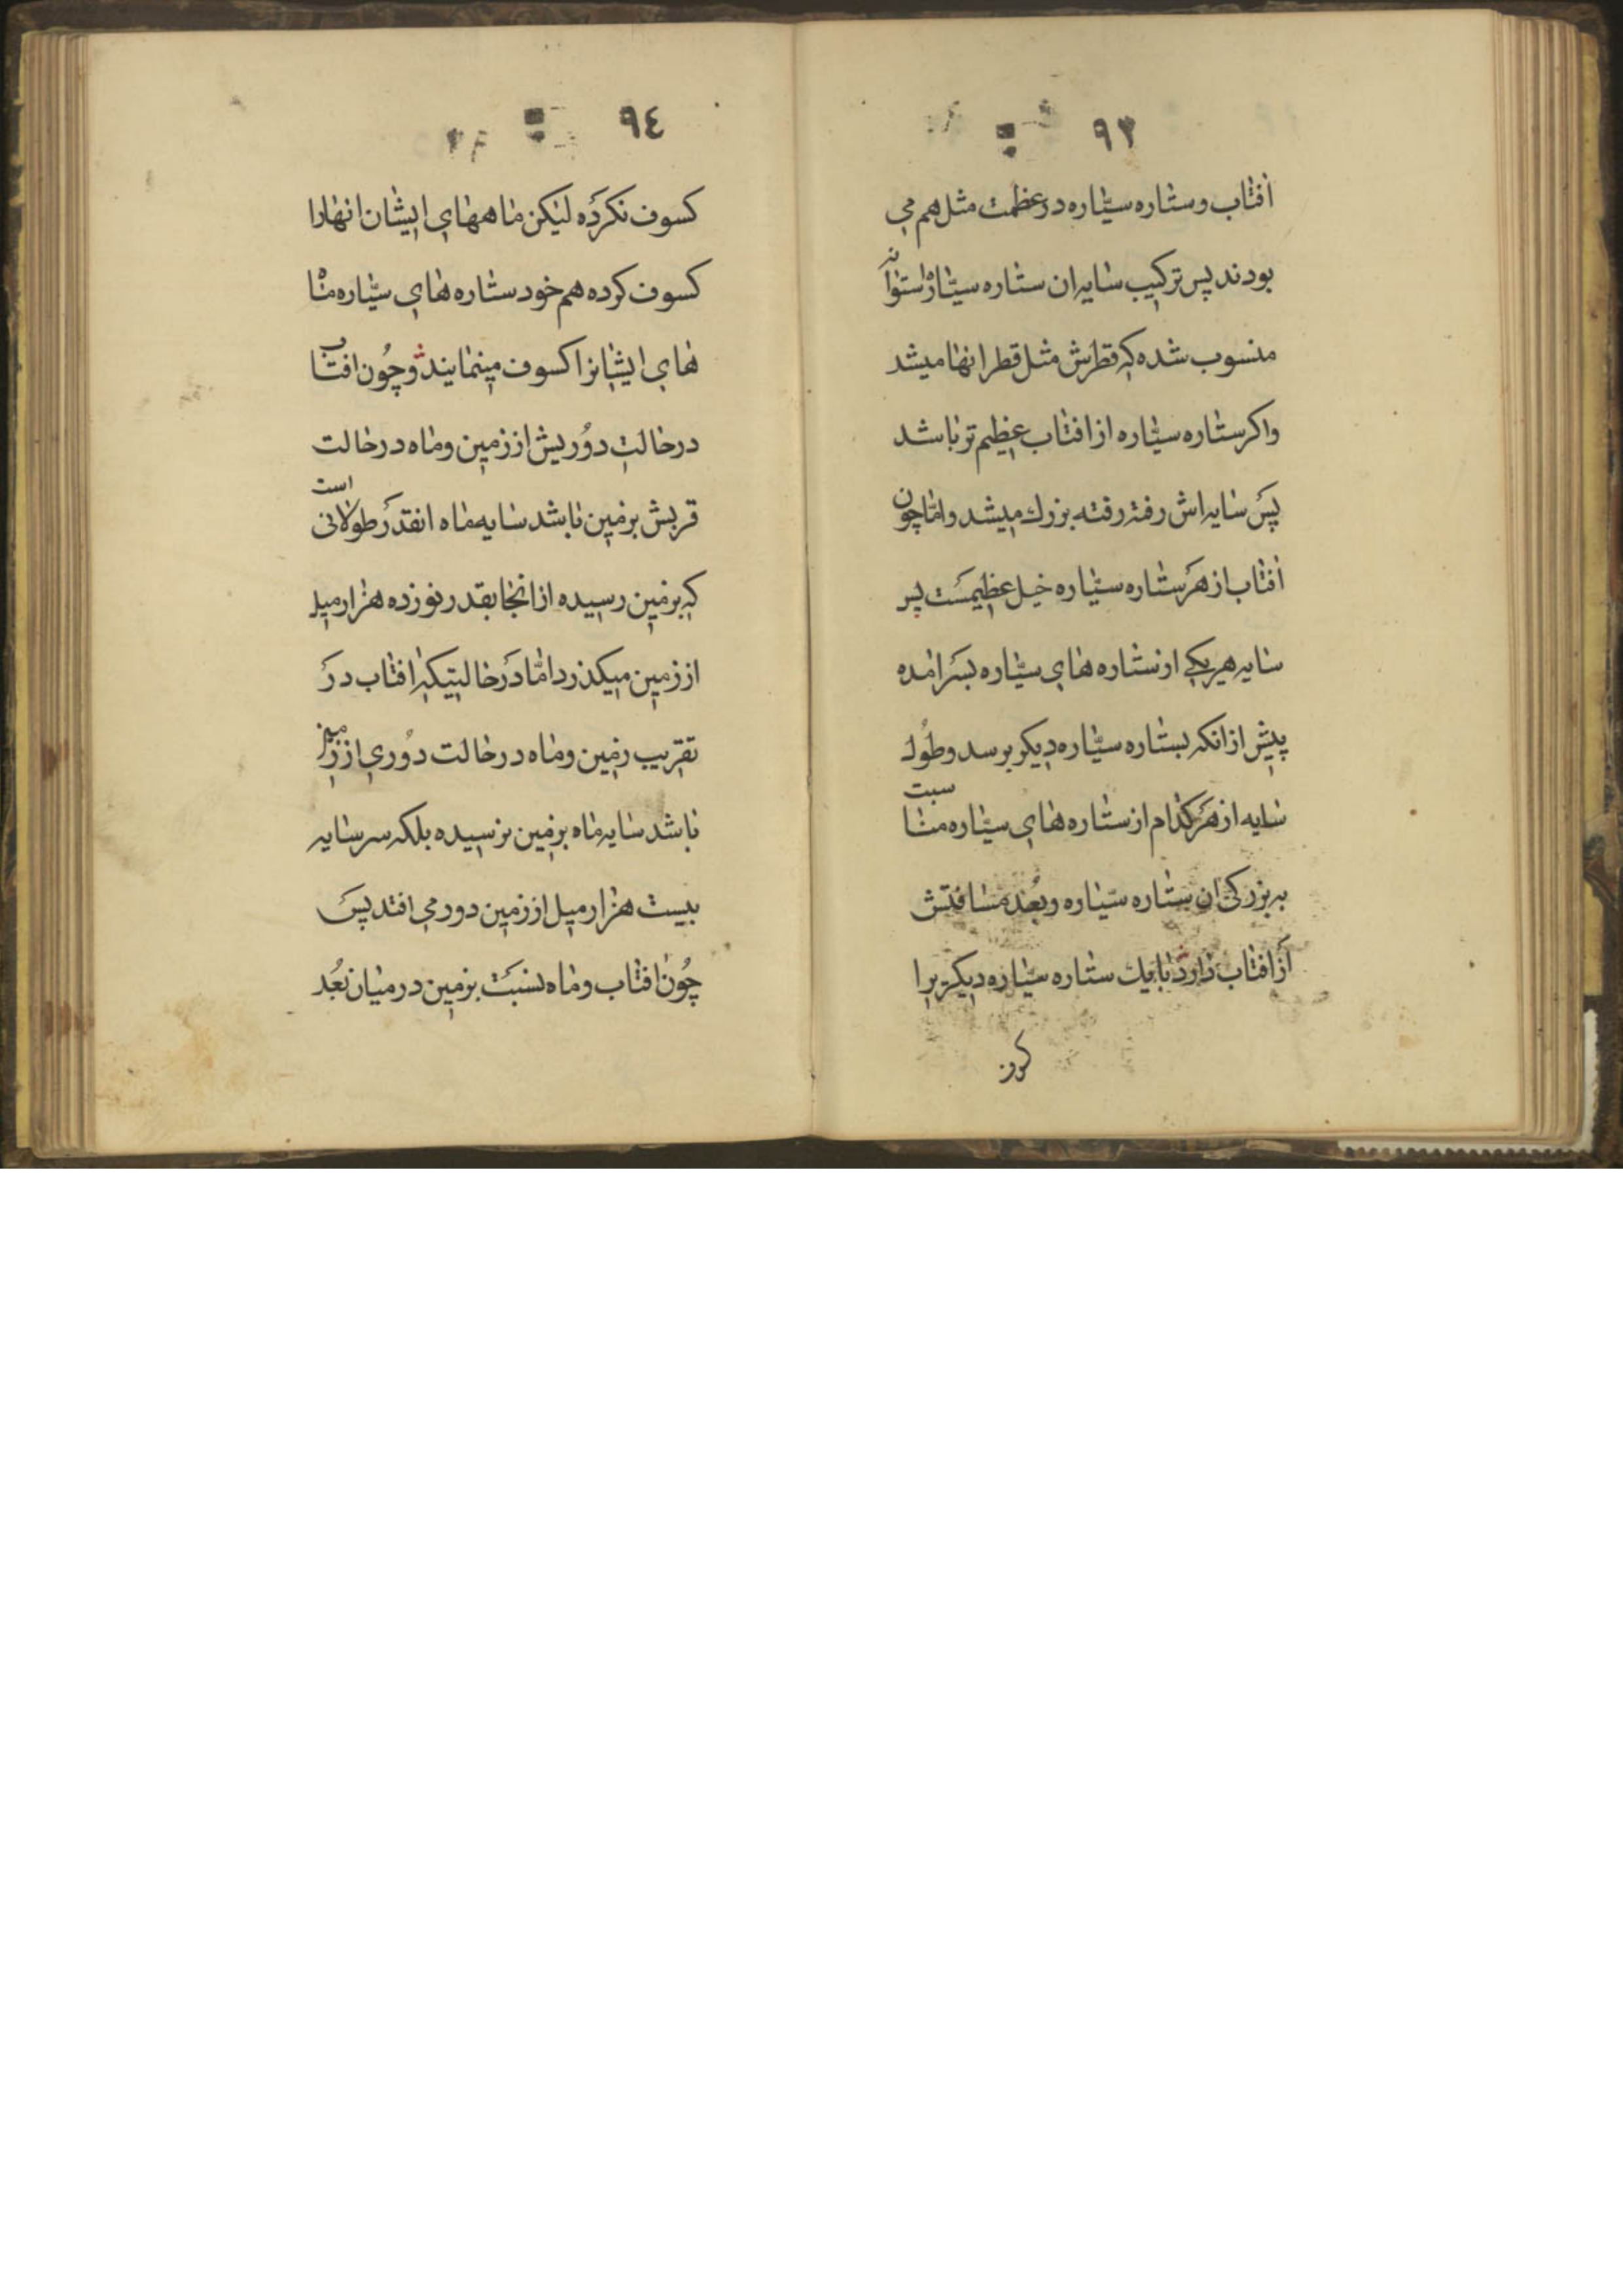 ۹۳
افتاب و ستاره سیّاره در عظمت مثل هم می
بودند پس ترکیب سایه ان ستاره سیّاره استوانه
منسوب شده که قطرش مثل قطر انها میشد
واکر ستاره سیّاره از افتاب عظیم تر باشد
پس سایه اش رفته رفته بزرك میشد و امّا چون
افتاب از هر ستاره سیّاره خیل عظیمست پس
سایه هر یکی از ستاره های سیّاره بسر امده
پیش از انکه بستاره سیّاره دیکر برسد و طُول
سایه از هر کدام از ستاره های سیّاره مناسبت
به بزرکی ان ستاره سیّاره و بُعد مسافتش
از افتاب دارد تا بیك ستاره سیّاره دیکر برا
۹٤
کسوف نکرده لیکن ماههای ایشان انها را
کسوف کرده هم خود ستاره های سیّاره ماه
های ایشانرا کسوف مینمایند و چُون افتاب
در حالت دُوریش از زمین و ماه در حالت
قربش بزمین باشد سایه ماه انقدر طولانی است
که بزمین رسیده از انجا بقدر نوزده هزار میل
از زمین میکذرد امّا در حالیتیکه افتاب در
تقریب زمین و ماه در حالت دُوری از زمین
باشد سایه ماه بزمین نرسیده بلکه سر سایه
بیست هزار میل از زمین دور می افتد پس
چُون افتاب و ماه نسبت بزمین در میان بُعد